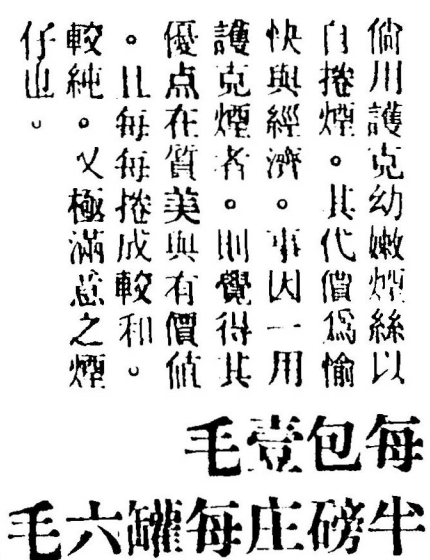 倘用護克幼嫩煙絲以
自捲煙。其代價爲愉
快與經濟。事因一用
護克煙者。則覺得其
優点在質美與有價值
。且每每捲成較和。
較純。又極滿意之煙
仔也。
每包壹毛
半磅庄每罐六毛